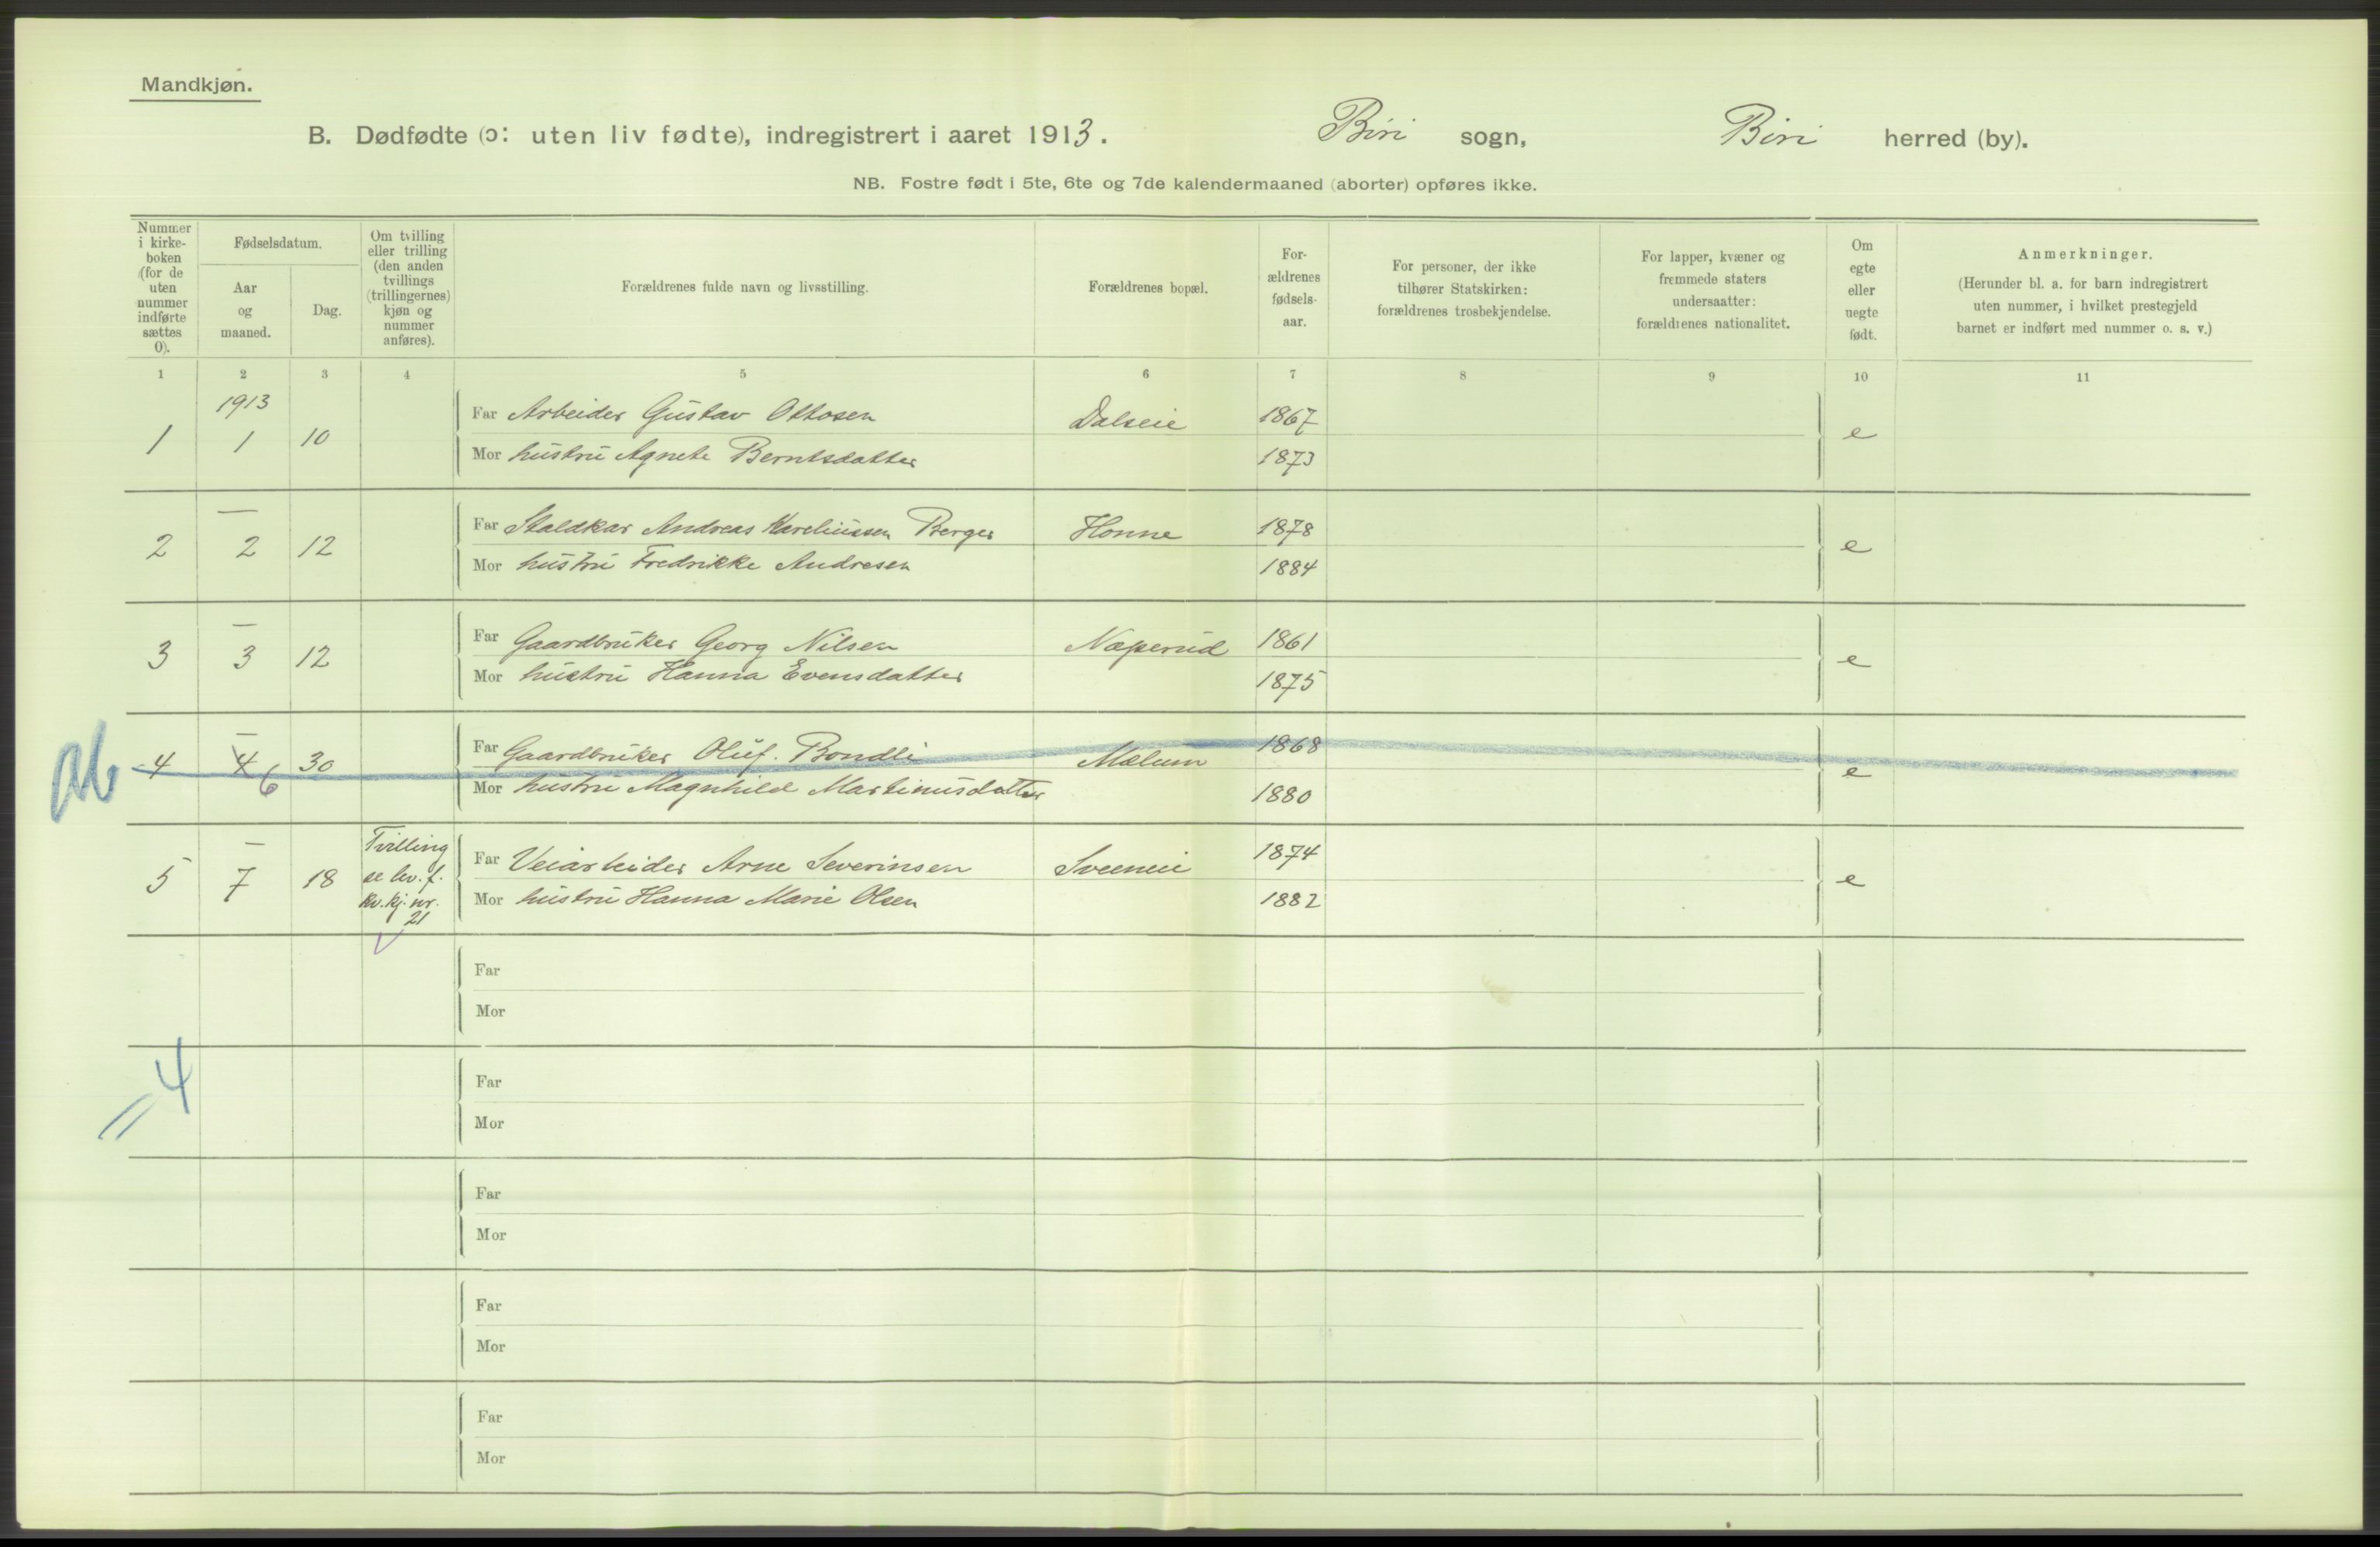 Mandkjøn.
B. Dødfødte (ɔ: uten liv fødte), indregistrert i aaret 1913. Biri sogn, Biri herred (by).
NB. Fostre født i 5te, 6te og 7de kalendermaaned (aborter) opføres ikke.
Nummer i kirke- boken (for de uten nummer indførte sættes 0).
Fødselsdatum.
Aar og maaned.
Dag.
Om tvilling eller trilling (den anden tvillings (trillingernes) kjøn og nummer anføres).
Forældrenes fulde navn og livsstilling.
Forældrenes bopæl.
For- ældrenes fødsels- aar.
For personer, der ikke tilhører Statskirken: forældrenes trosbekjendelse.
For lapper, kvæner og fremmede staters undersaatter: forældrenes nationalitet.
Om egte eller uegte født.
Anmerkninger.
(Herunder bl. a. for barn indregistrert uten nummer, i hvilket prestegjeld barnet er indført med nummer o. s. v.)
1 2 3 4 5 6 7 8 9 10 11
1913
1 1 10 Far Arbeider Gustav Ottosen Dalseie 1867 e
Mor hustru Agnete Berntsdatter 1873
—
2 2 12 Far Staldkar Andreas Kareliussen Berger Honne 1878 e
Mor hustru Fredrikke Andresen 1884
—
3 3 12 Far Gaardbruker Georg Nilsen Næperud 1861 e
Mor hustru Hanna Evensdatter 1875
—
ab 4 4 6 30 Far Gaardbruker Oluf. Bondli Mælum 1868 e
Mor hustru Magnhild Martinusdatter 1880
—
5 7 18 Tvilling se lev. f. kv. kj. nr. 21 Far Veiarbeider Arne Severinsen Sveeneie 1874 e
Mor hustru Hanna Marie Olsen 1882
Far
Mor
= 4
Far
Mor
Far
Mor
Far
Mor
Far
Mor